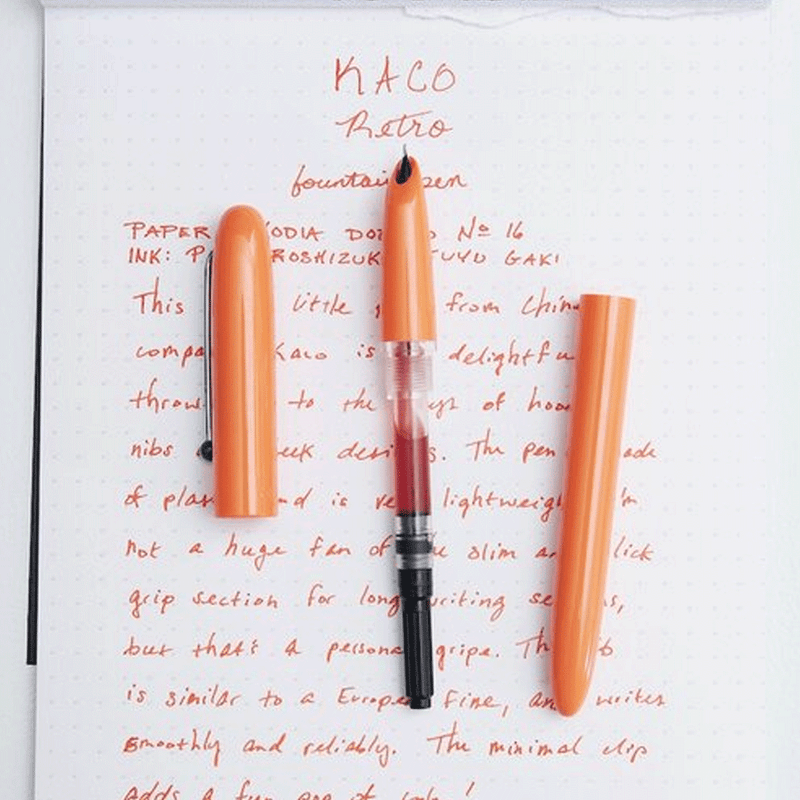 KACO
Retro
fountain pen
PAPER ODIA DO No 16
INK: P ROSHIZUK YUYU GAKI
This little from Chin
compa Kaco is delightfu
throw to the ys of hoo
nibs eek desi s. The pen ade
of plas nd is ve lightweigh 'm
not a huge fan of the slim a lick
grip section for long writing se s,
but that's a personal gripe. Th ib
is similar to a Europe Fine, and writes
smoothly and reliably. The minimal clip
adds a fun pop of !